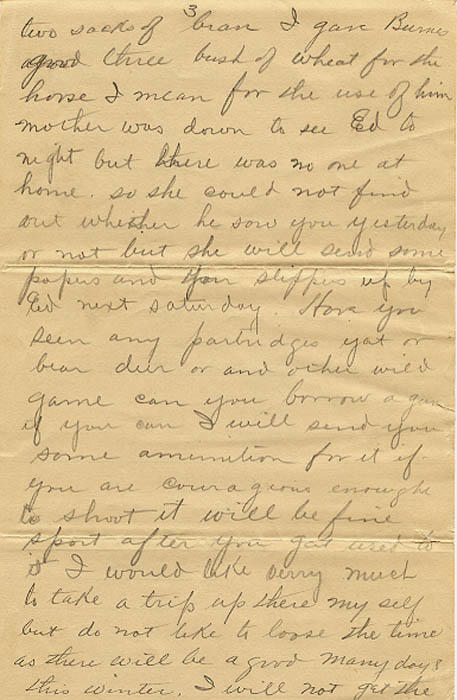 3
two sacks of bran I gave Burns
a good three bush of wheat for the
horse I mean for the use of him
mother was down to see Ed to
night but there was no one at
home. so she could not find
out whether he saw you yesterday
or not but she will send some
papers and your slippers up by
Ed next saturday. Have you
seen any partridges yat or
bear deer or and other wild
game can you borrow a gun
if you can I will send you
some amunition for it if
you are couragious enought
to shoot it will be fine
sport after you get used to
it I would like verry much
to take a trip up there my self
but do not like to loose the time
as there will be a good many days
this winter. I will not get the